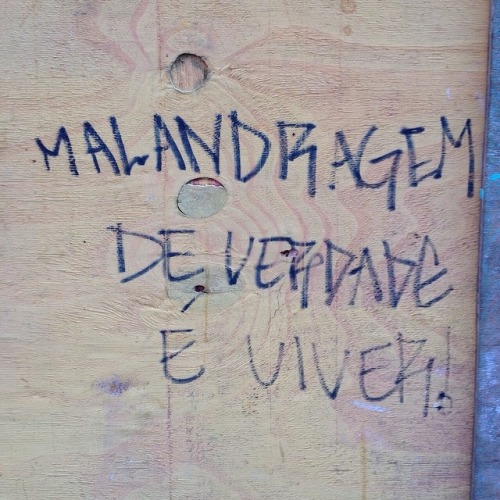 MALANDRAGEM
DE VERDADE
É VIVER!